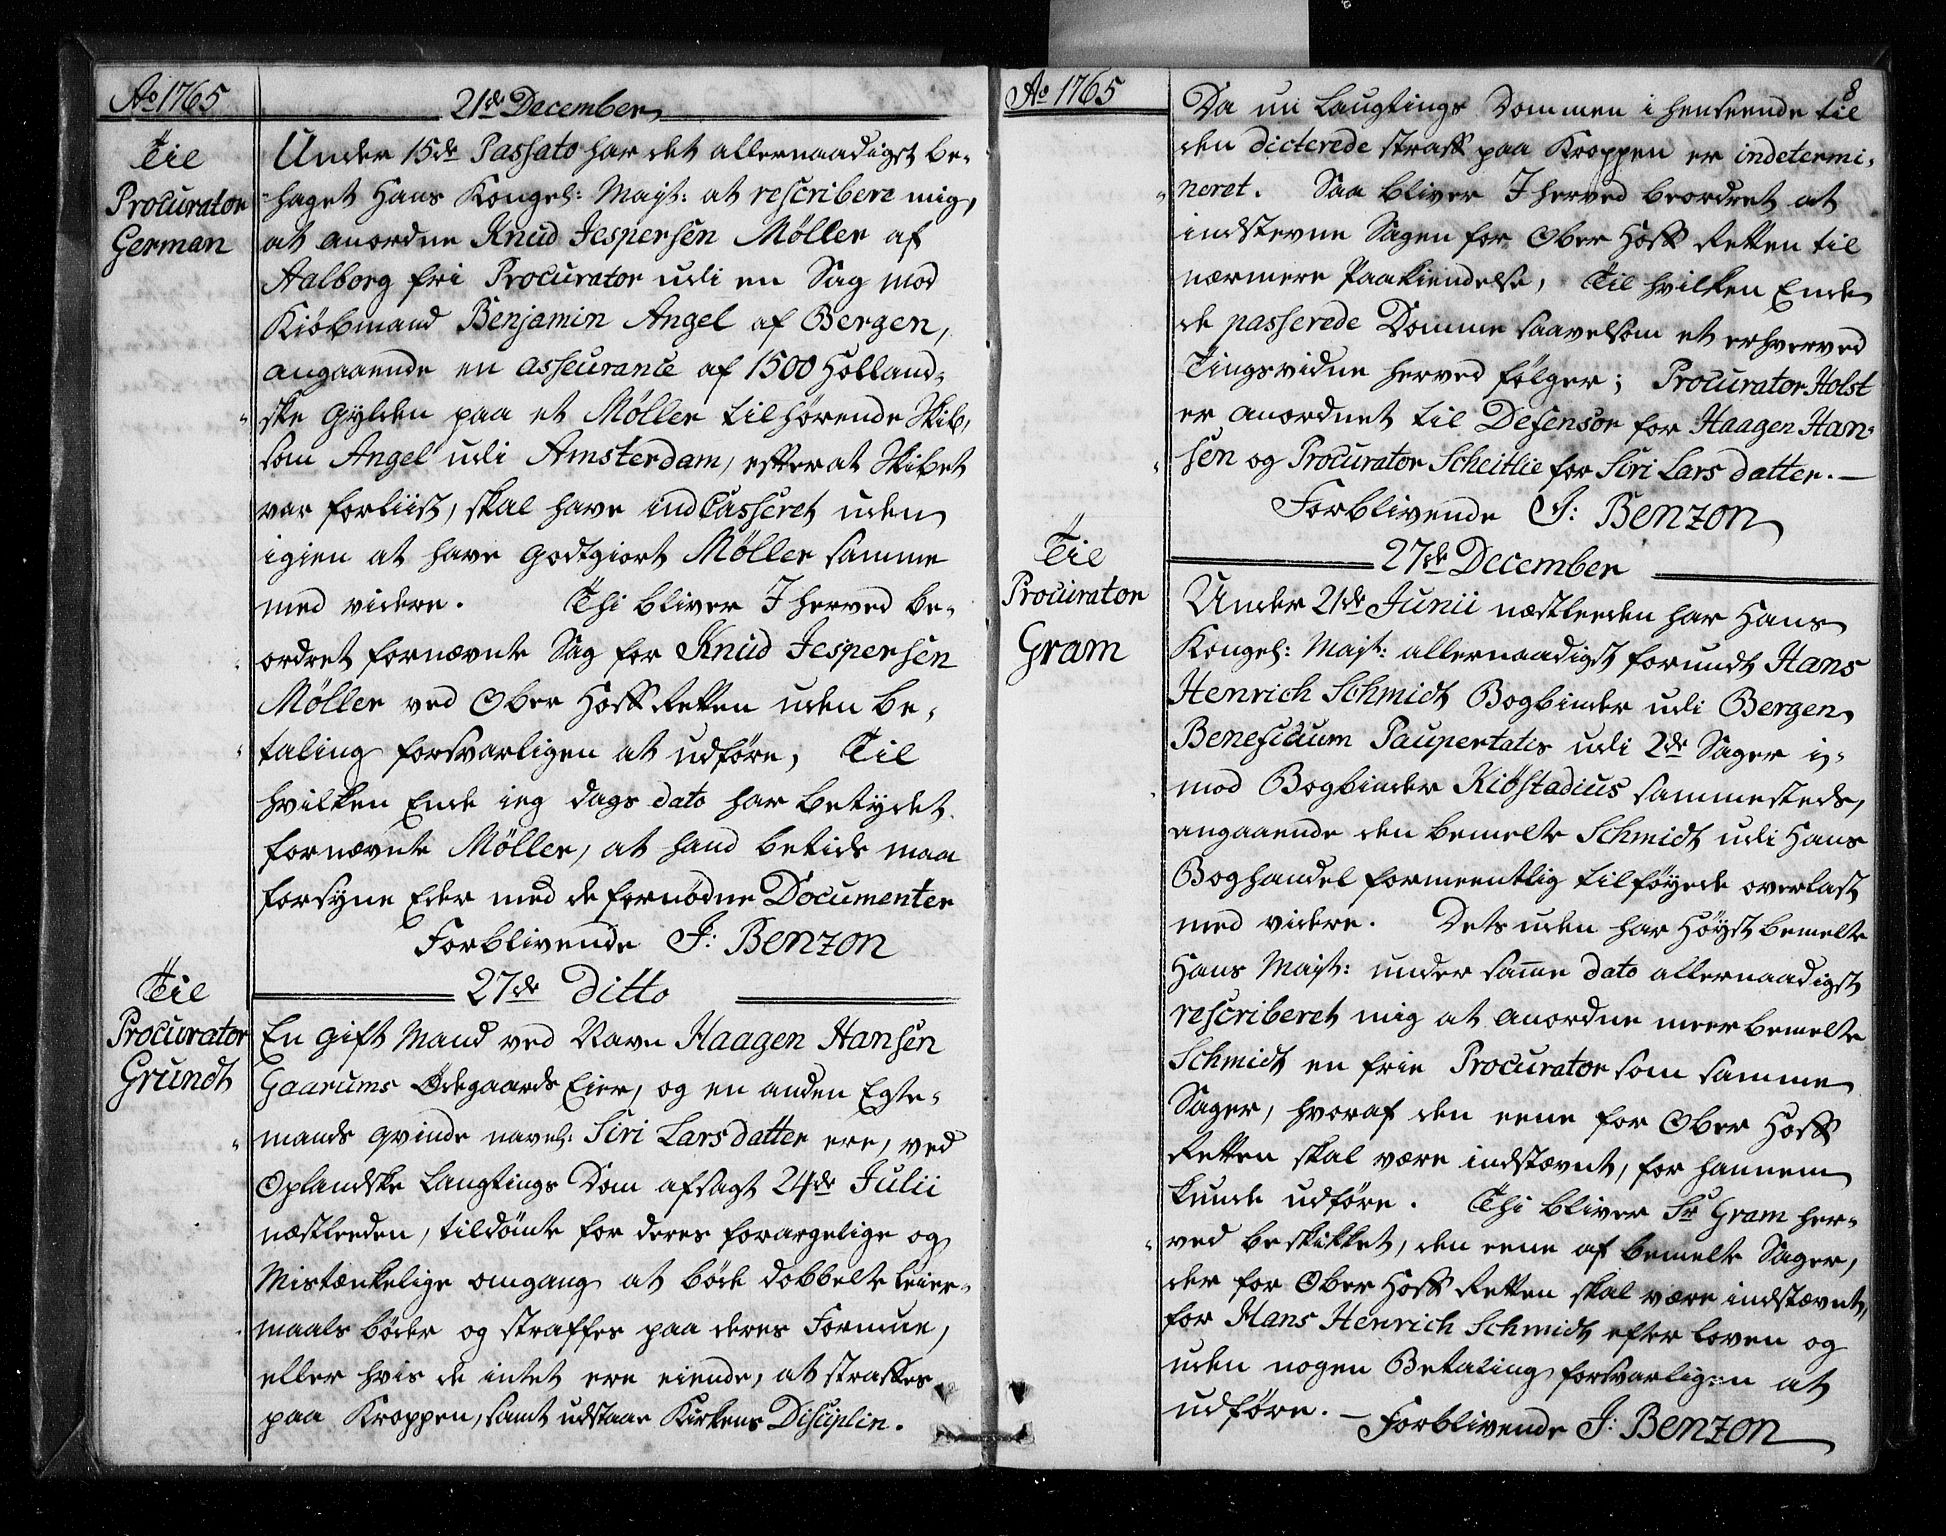 Ao 1765
21de December
Til
Procurator
German
Under 15de Passato har det allernaadigst be-
haget Hans Kongel: Mayt: at rescribere mig,
at anordne Knud Jespersen Møller af
Aalborg fri Procurator udi en Sag mod
Kiöbmand Benjamin Angel af Bergen,
angaaende en asseurance af 1500 Holland-
ske Gylden paa et Møller tilhørende Skib,
som Angel udi Amsterdam, efterat Skibet
var forliist, skal have indCasseret uden
igien at have godtgiort Møller samme
med videre. Thi bliver I herved be-
ordret fornævnte Sag for Knud Jespersen
Møller ved Ober Hoff Retten uden be-
taling forsvarligen at udføre, Til
hvilken Ende ieg dags dato har betydet
fornævnte Møller, at hand betids maa
forsyne Eder med de fornødne Documenter
Forblivende J: Benzon
27de Ditto
Til
Procurator
Grundt
En gift Mand ved Navn Haagen Hansen
Gaarums Ødegaards Eier, og en anden Egte-
mands qvinde navnl: Siri Larsdatter ere, ved
Oplandske Laugtings Dom afsagt 24de Julii
næstleeden, tildömte for deres forargelige og
Mistænkelige omgang at böde dobbelte leier-
maals böder og straffes paa deres Formue,
eller hvis de intet ere eiende, at straffes
paa Kroppen, samt udstaae Kirkens Disciplin.
Ao 1765
8
Da nu Laugtings Dommen i henseende til
den dicterede straff paa Kroppen er indetermi-
neret. Saa bliver I herved beordret at
indstevne Sagen for Ober Hoff Retten til
nærmere Paakiendelse, Til hvilken Ende
de passerede Domme saavelsom et erhverved
Tingsvidne herved fölger; Procurator Holst
er anordnet til Defensor for Haagen Han-
sen og Procurator Scheitlie for Siri Lars datter. —
Forblivende J: Benzon
27de December
Til
Procurator
Gram
Under 21de Junii næstleeden har Hans
Kongel: Mayt: allernaadigst forundt Hans
Henrich Schmidt Bogbinder udi Bergen
Beneficium Paupertatis udi 2de Sager i-
mod Bogbinder Kiöstadius sammesteds,
angaaende den bemelte Schmidt udi Hans
Boghandel formeentlig tilföyede overlast
med videre. Dets uden har Höyst bemelte
Hans Mayt: under samme dato allernaadigst
rescriberet mig at anordne meerbemelte
Schmidt en frie Procurator som samme
Sager, hvoraf den eene for Ober Hoff
Retten skal være indstævnt, for hannem
kunde udföre. Thi bliver Sr Gram her-
ved beskikket, den eene af bemelte Sager,
der for Ober Hoff Retten skal være indstævnt,
for Hans Henrich Schmidt efter loven og
uden nogen Betaling forsvarligen at
udföre. — Forblivende J: Benzon